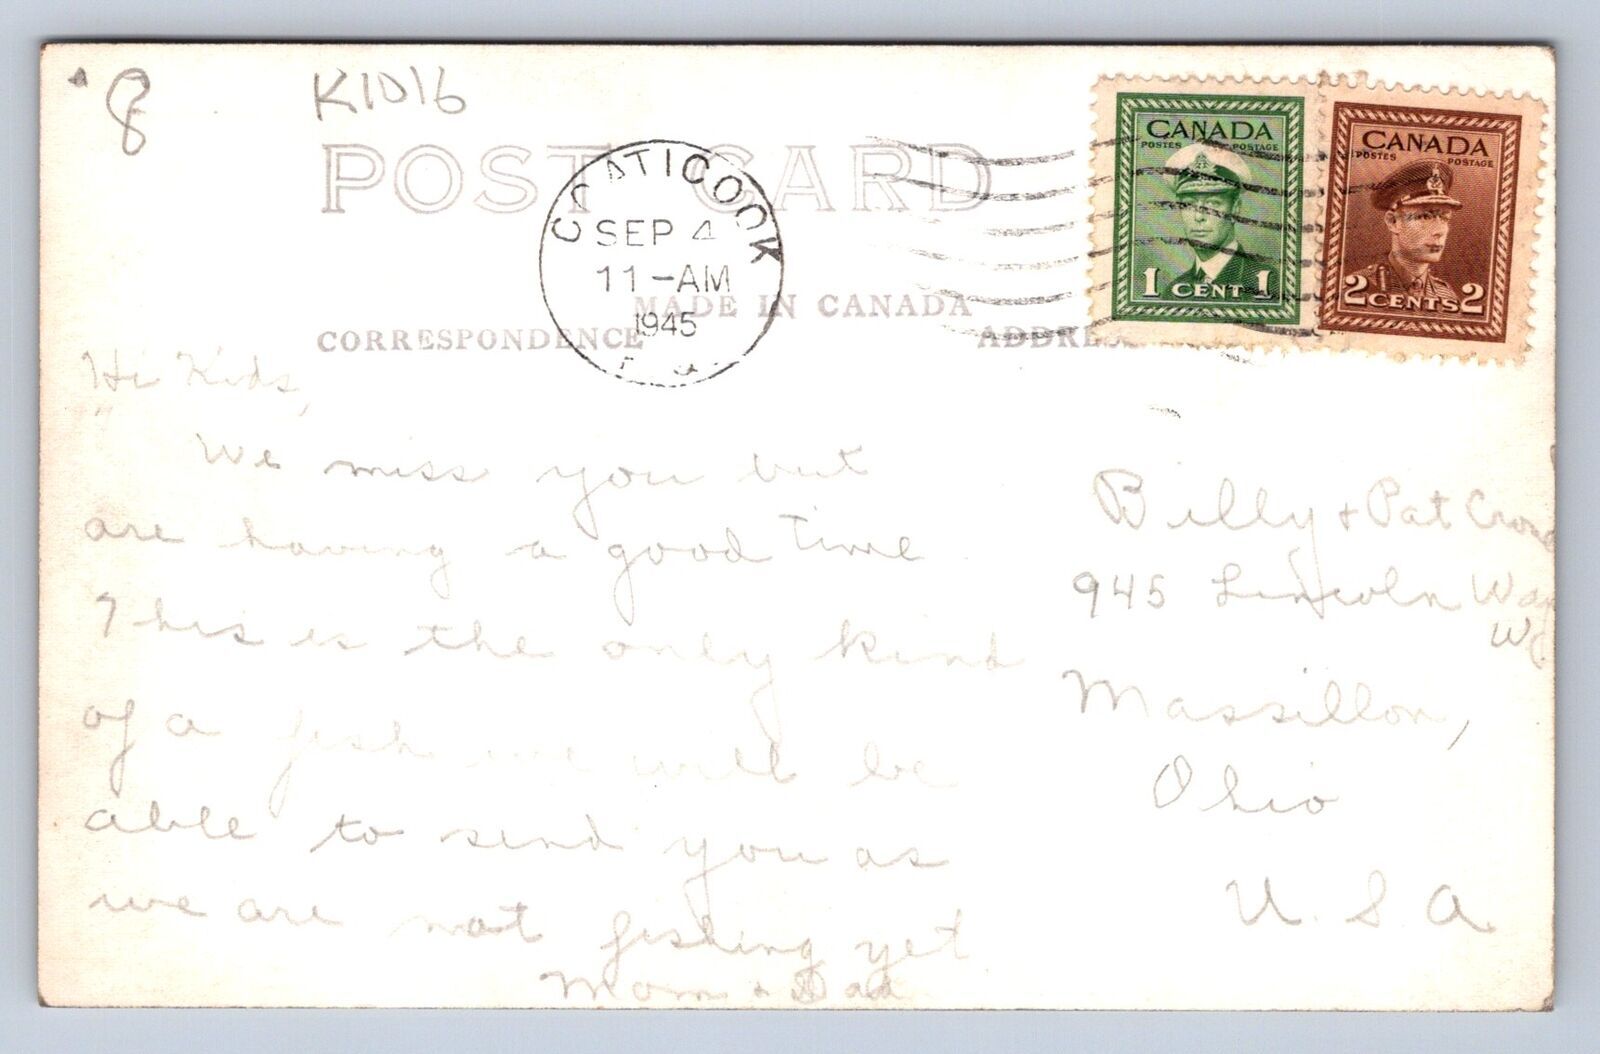 8
K1016
POST CARD
COATICOOK
SEP 4
11-AM
1945
P. Q.
CANADA
POSTES POSTAGE
1 CENT 1
CANADA
POSTES POSTAGE
2 CENTS 2
MADE IN CANADA
CORRESPONDENCE
ADDRESS
Hi Kids,
We miss you but
are having a good time
This is the only kind
of a fish we will be
able to send you as
we are not fishing yet
Mom & Dad
Billy + Pat
945 Lincoln Way
W.
Massillon,
Ohio
U. S A